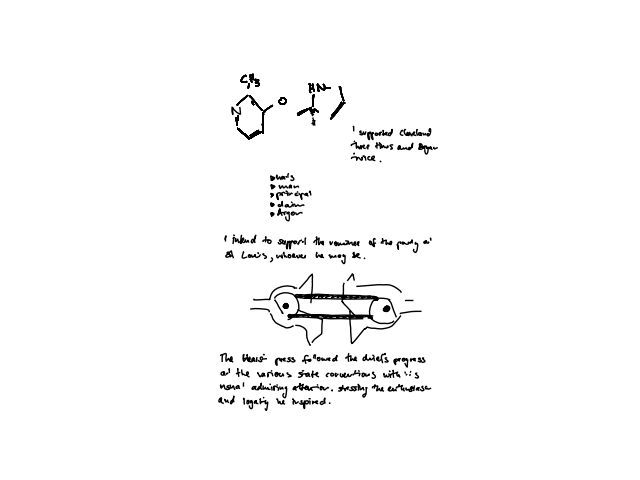 CH3
N
O
HN
I supported Cleveland
three times and Bryan
twice.
man
principal
claim
Argon
I intend to support the nominee of the party at
St Louis, whoever he may be.
The Hearst press followed the chief's progress
at the various state conventions with its
usual admiring attention, stressing the enthusiasm
and loyalty he inspired.